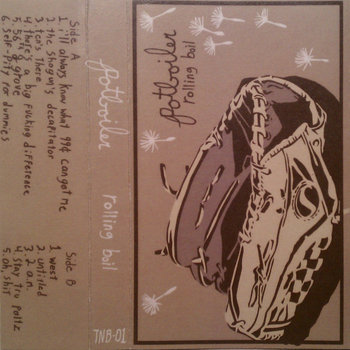 Side A
1 i'll always know what 99¢ can get me
2 the shogun's decapitator
3 ten's There
4 there's a big fucking difference
5. 56th & grove
6. Self-Pity for dummies
Side B
1 west
2 untitled
3 2 a.m.
4 stay tru Poltz
5. oh, shit
Potboiler
rolling boil
TNB-01
Potboiler
rolling boil
S